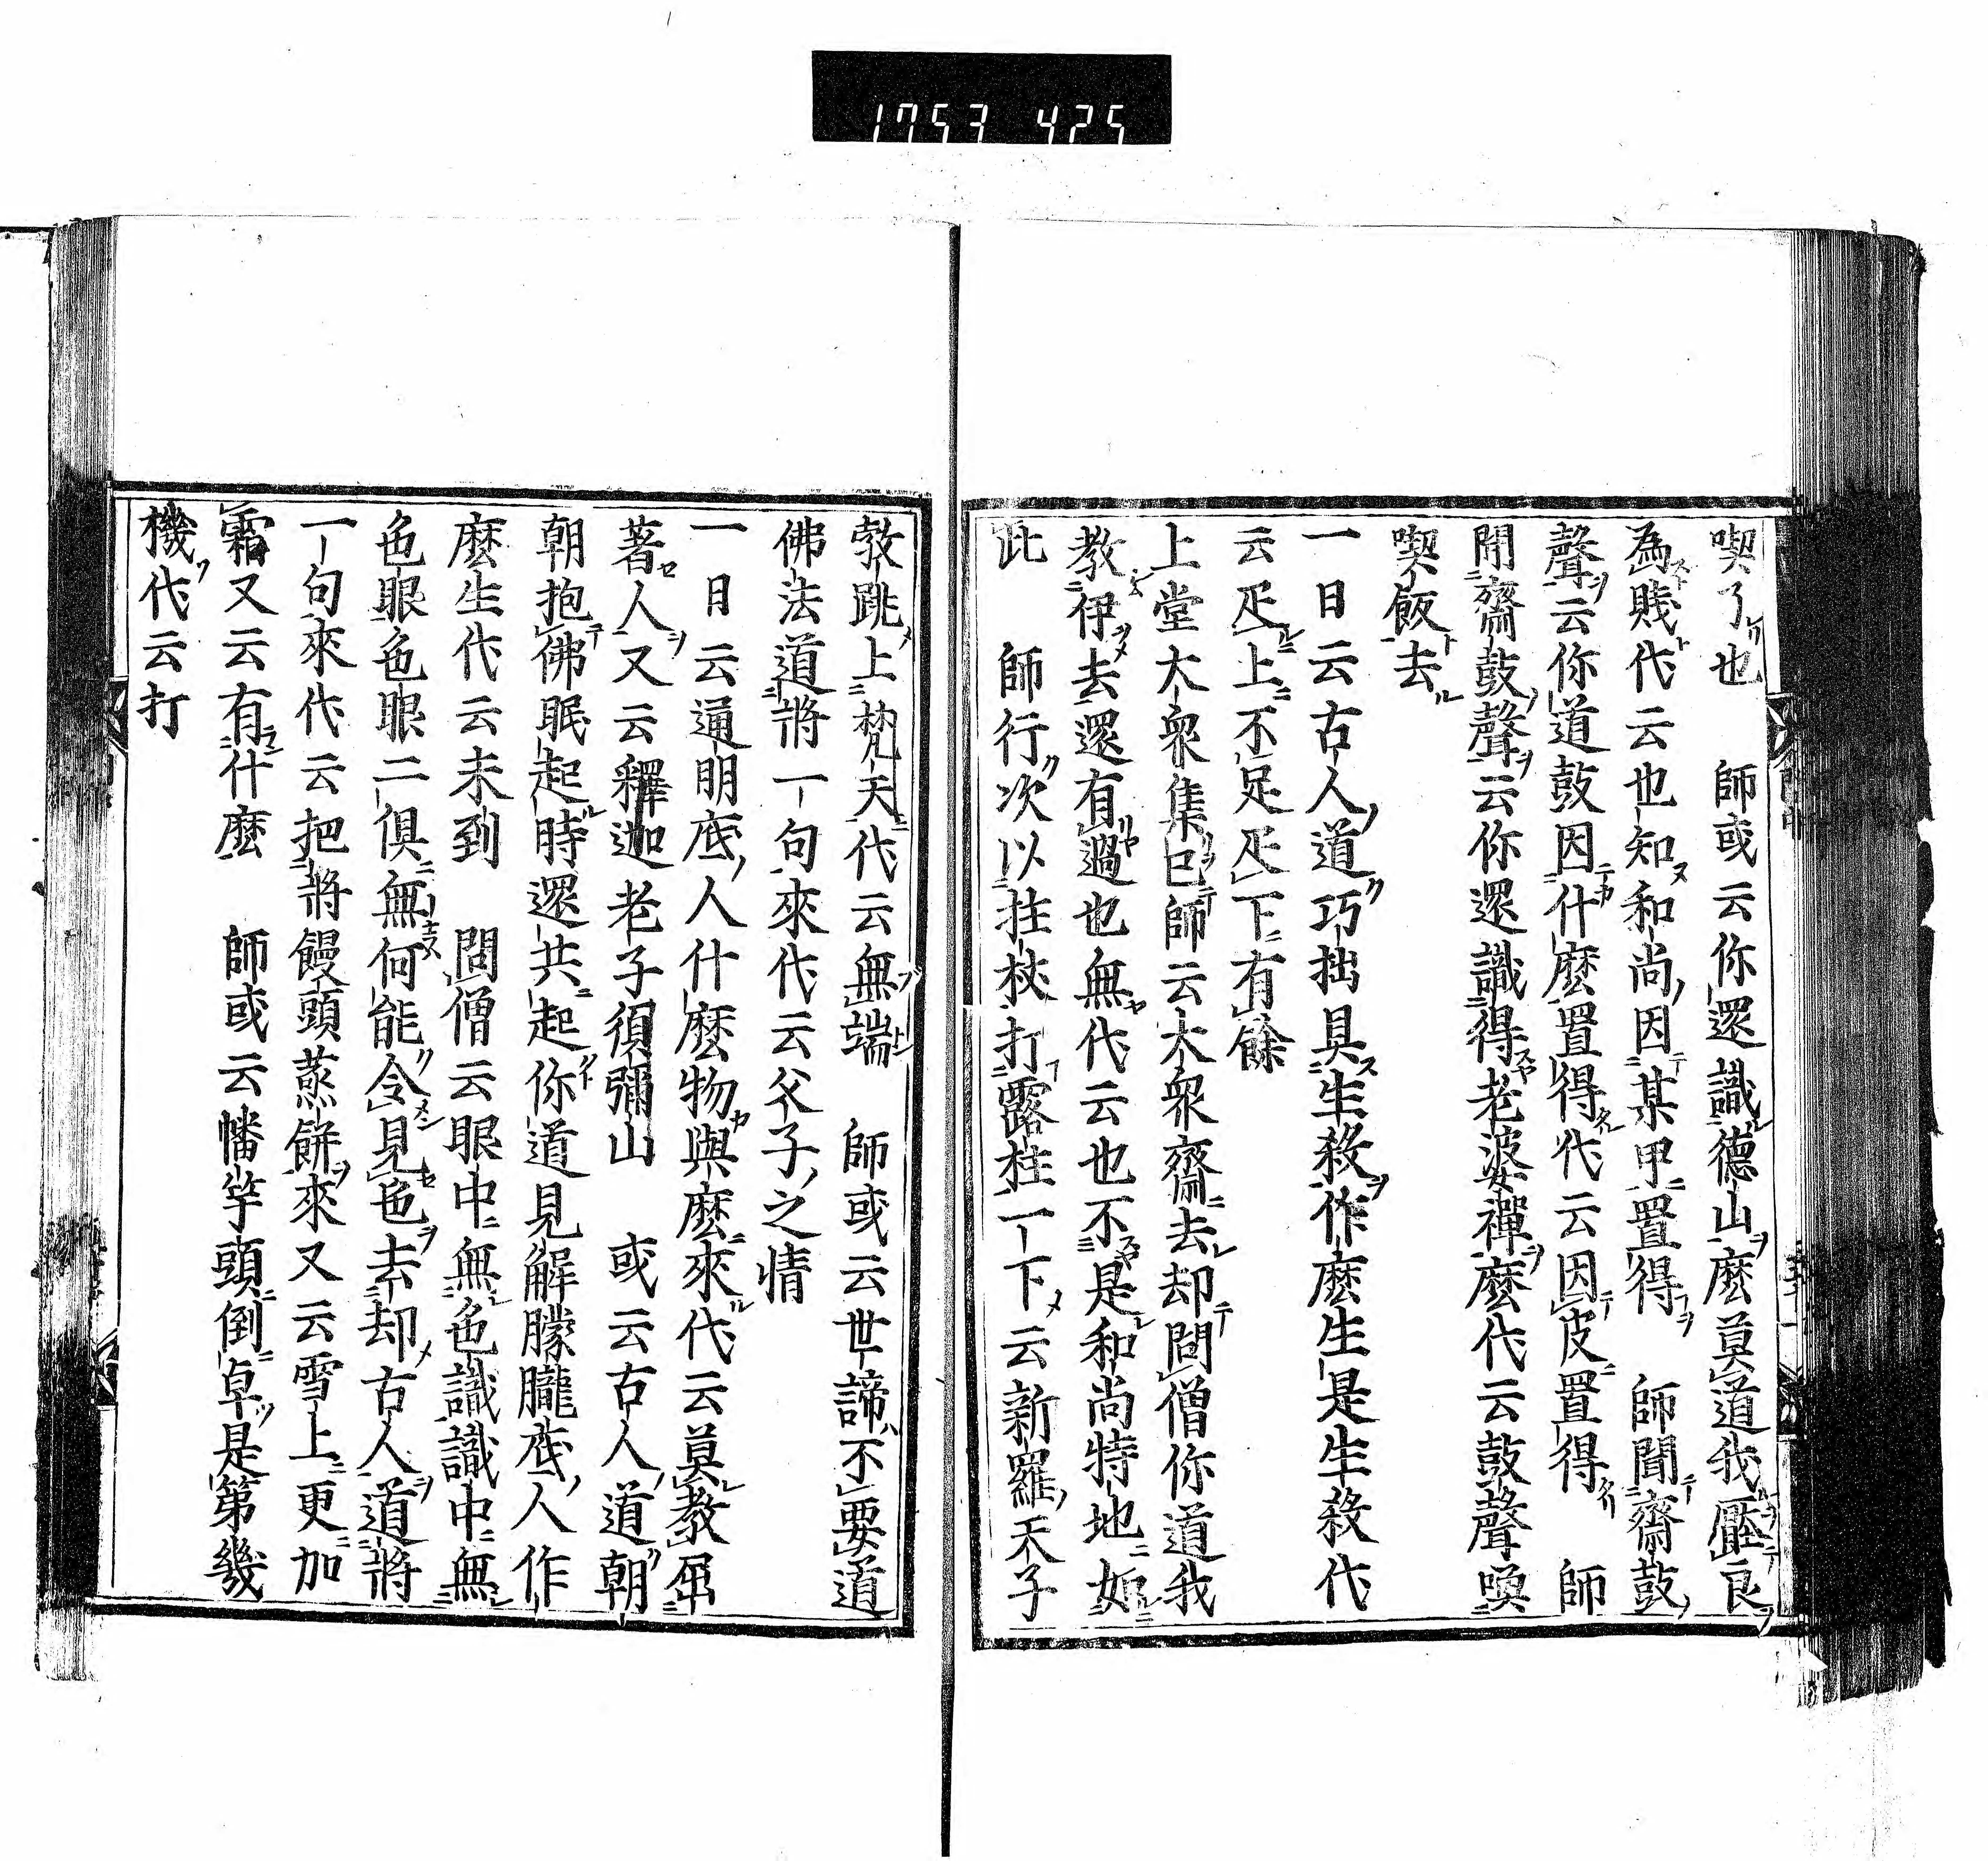 1753 425
喫了也　師或云你還識德山麽莫道我壓良
為賤代云也知和尚因某甲置得　師聞齋鼓
聲云你道鼓因什麽置得代云因皮置得　師
聞齋鼓聲云你還識得老婆禪麽代云鼓聲喚
喫飯去
一日云古人道巧拙具生殺作麽生是生殺代
云疋上不足疋下有餘
上堂大衆集巳師云大衆齋去却問僧你道我
教伊去還有過也無代云也不是和尚特地如
此　師行次以拄杖打露柱一下云新羅天子
敎跳上梵天代云無端　師或云世諦不要道
佛法道將一句來代云父子之情
一日云通明底人什麽物與麽來代云莫教屈
著人又云釋迦老子須彌山　或云古人道朝
朝抱佛眠起時還共起你道見解朦朧底人作
麽生代云未到　問僧云眼中無色識識中無
色眼色眼二俱無何能令見色去却古人道將
一句來代云把將饅頭蒸餅來又云雪上更加
霜又云有什麽　師或云幡竿頭倒卓是第幾
機代云打